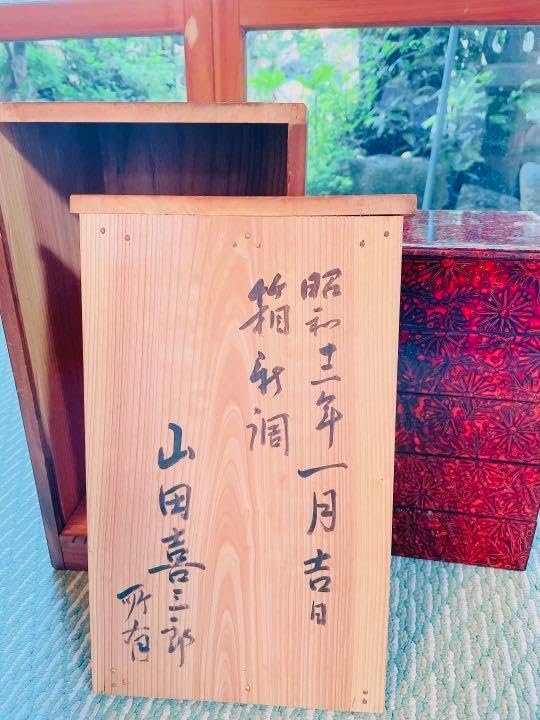 昭和十三年一月吉日
箱新調
山田喜三郎
所有